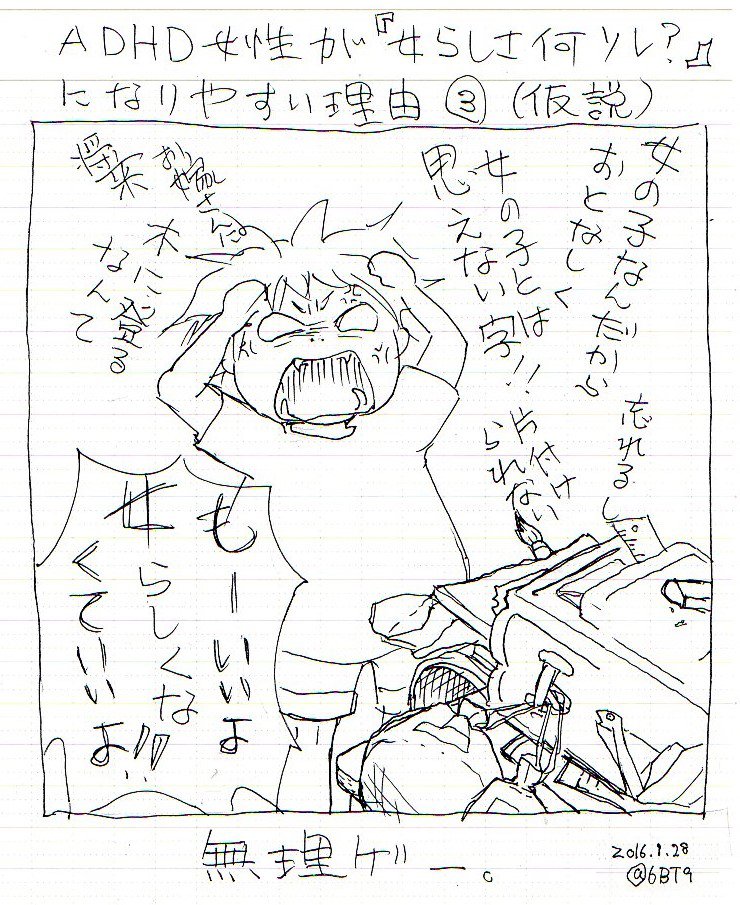 ADHD女性が『女らしさ何ソレ?』
になりやすい理由③(仮説)
女の子なんだから
おとなしく
女の子とは
思えない字!!
忘れるし
片付け
られない
お嫁さんは
将来
木に登る
なんて
もーいいよ
女らしくな
くていいよ!!
無理ゲー。
2016.1.28
@6BT9